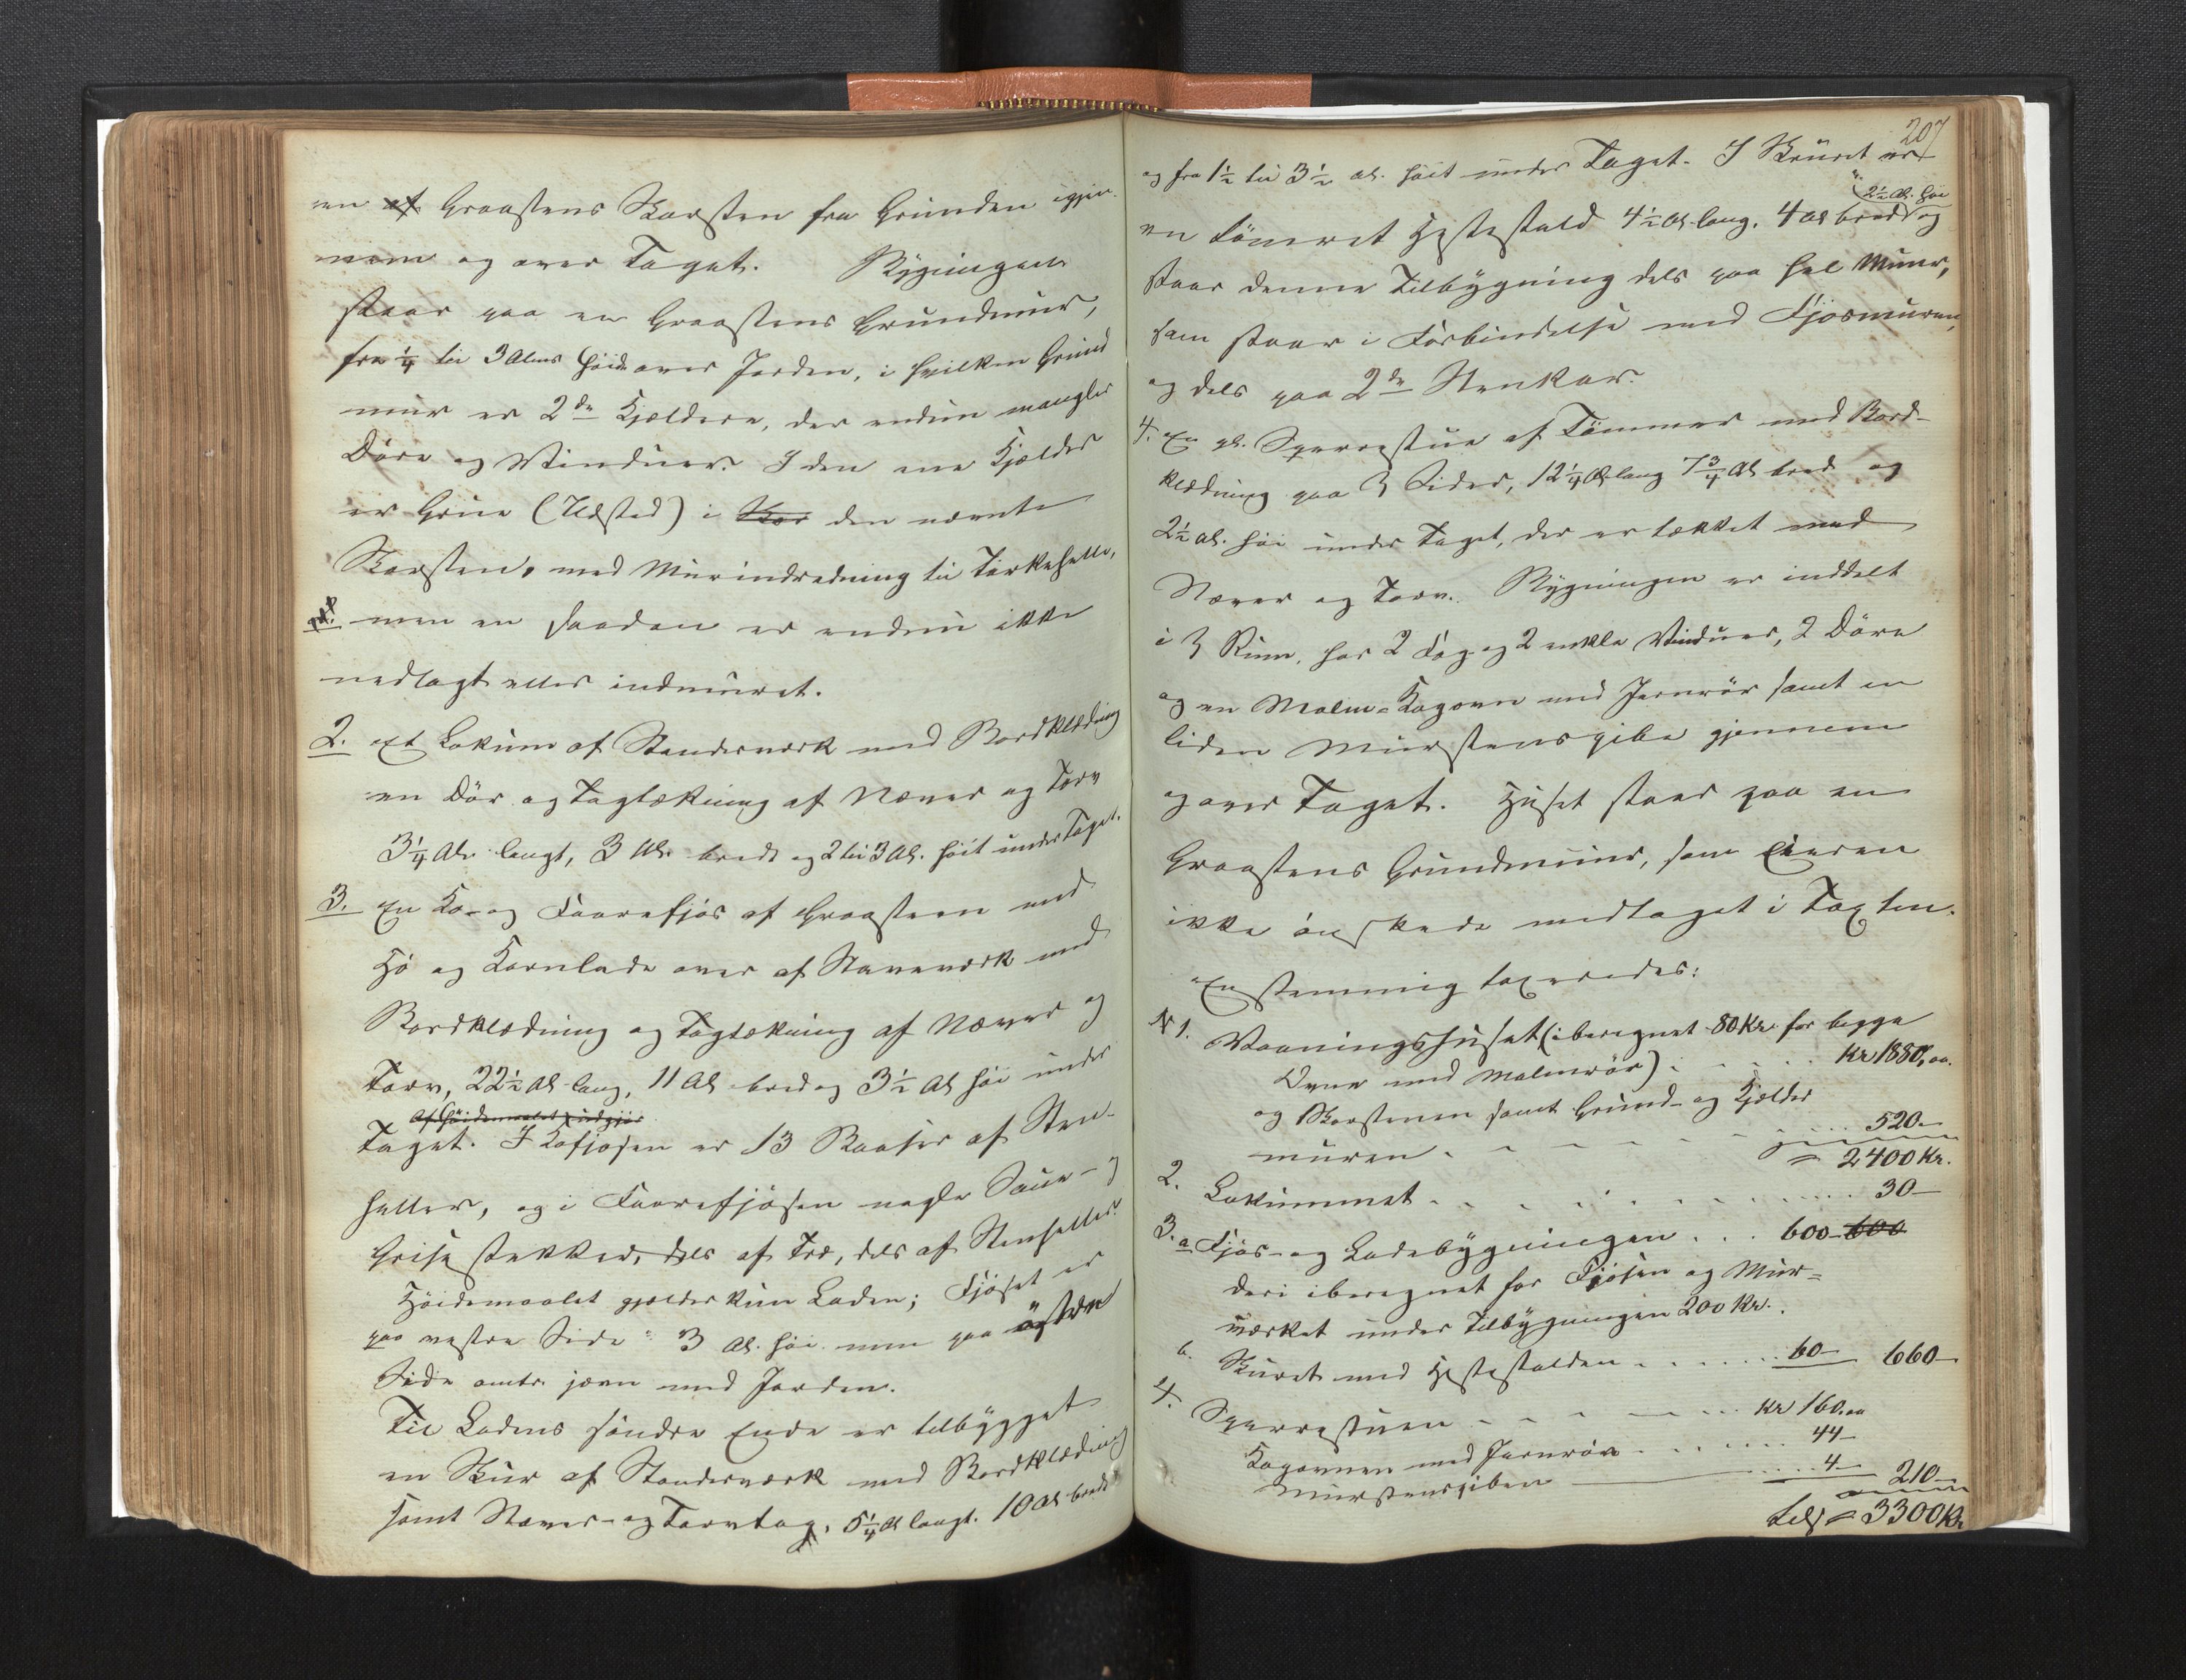 en af Graastens Skorsten fra Grunden igjen-
nem og over Taget. Bygningen
staar paa en Graastens Grundmur,
fra ¼ til 3 Alens Höide over Jorden, i hvilken Grund
mur er 2de Kjældere, der endnu mangler
Döre og Vinduer. I den ene Kjelder
er Grue (Ildsted) i Kor den nævnte
Skorsten, med Murindredning til Törkehelle,
men en saadan er endnu ikke
nedlagt eller indmuret.
2. et Lokum af Stenderværk med Bordklædning
en Dör og Tagtækning af Næver og Torv
3¼ Al. langt, 3 Al. bredt og 2 til 3 Al. höit under Taget.
3. En Ko- og Faarefjös af Graasteen med
Hö og Kornlade over af Staveværk med
Bordklædning og Tagtækning af Næver og
Torv, 22½ Al lang, 11 Al bred og 3½ Al höi under
Af Höidemaalet udgjör
Taget. I Kofjösen er 13 Baaser af Sten-
heller, og i Faarefjösen nogle Saue- og
Grise stekker, dels af Træ, dels af Stenheller.
Höidemaalet gjælder kun Laden; Fjöset er
paa vestre Side 3 Al. höi men paa östre
Side omtr. jævn med Jorden.
Til Ladens söndre Ende er tilbygget
en Skur af Stenderværk med Bordklædning
samt Næver- og Torvtag, 5¼ Al langt. 10 Al bredt
207
og fra 1½ til 3½ Al. höit under Taget. I Skuret er
2½ Al. höi
en tömret Hestestald 4½ Al. lang, 4 Al bred og
staar denne Tilbygning dels paa hel Muur,
som staar i Forbindelse med Fjösmuren,
og dels paa 2de Stenkar.
4. En gl. Sperrestue af Tömmer med Bord-
klædning paa 3 Sider, 12¼ Al lang 7¾ Al bred og
2½ Al. höi under Taget, der er tækket med
Næver og Torv. Bygningen er inddelt
i 3 Rum, har 2 Fag og 2 enkle Vinduer, 2 Döre
og en Malm-Kogovn med Jernrör samt en
liden Murstenspibe gjennem
og over Taget. Huset staar paa en
Graastens Grundmuur, som Eieren
ikke önskede medtaget i Taxten.
Enstemmig taxeredes:
N 1. Vaaningshuset (iberegnet 80 Kr. for begge
Ovne med Malmrör) . . . . Kr 1880,00.
og Skorstenen samt Grund- og Kjelder
muren . . . . . . . 520-
= 2400 Kr.
2. Lokummet . . . . . . . . 30-
3. a Fjös- og Ladebygningen . . . 600- 600
deri iberegnet for Fjösen og Mur=
værket under Tilbygningen 200 Kr.
b. Skuret med Hestestalden . . . . . 60- 660-
4. Sperrestuen . . . . . . Kr 160.00
Kogovnen med Jernrör . . . . . . 44-
Murstenspiben . . . . 4- 210-
tils = 3300 Kr